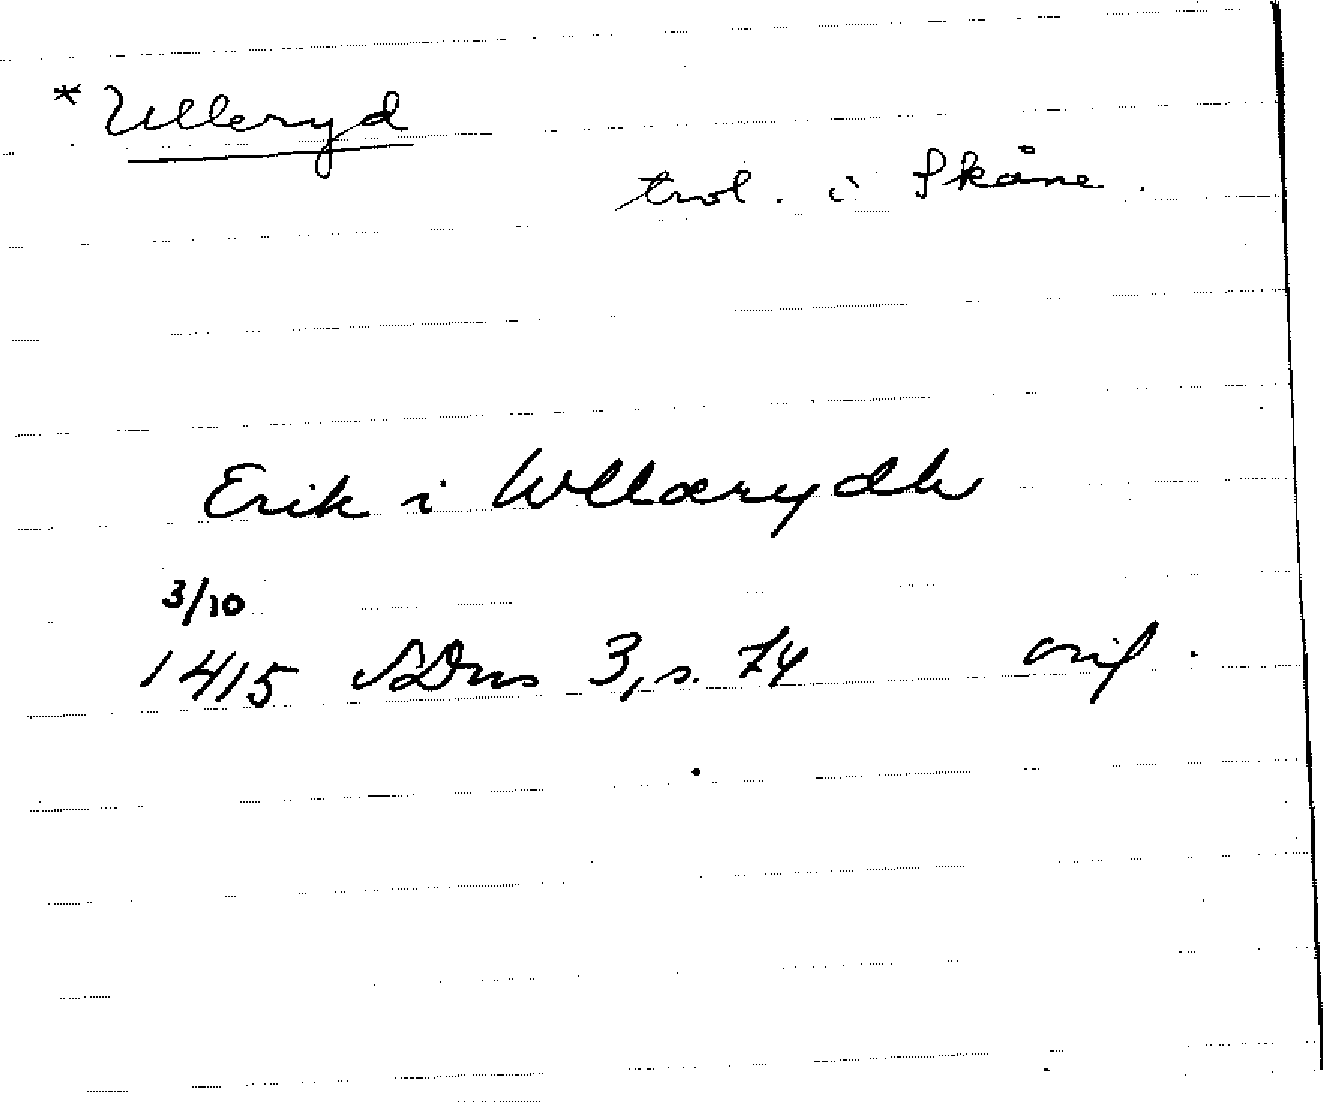 * Ulleryd
trol. i Skåne.
Erik i Wllærydh
3/10
1415 SDns 3, s. 74 orig.